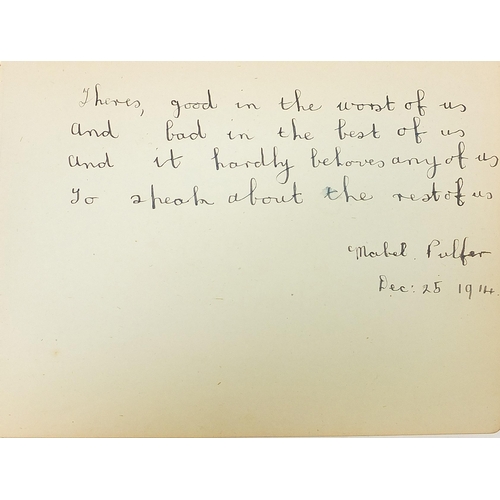 Theres, good in the worst of us
And bad in the best of us
And it hardly behoves any of us
To speak about the rest of us
Mabel Pulfer
Dec: 25 1914.